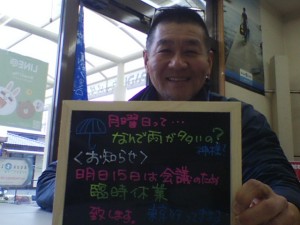 月曜日って…
なんで雨が多いの?
＜お知らせ＞
明日15日は会議のため
臨時休業
致します。